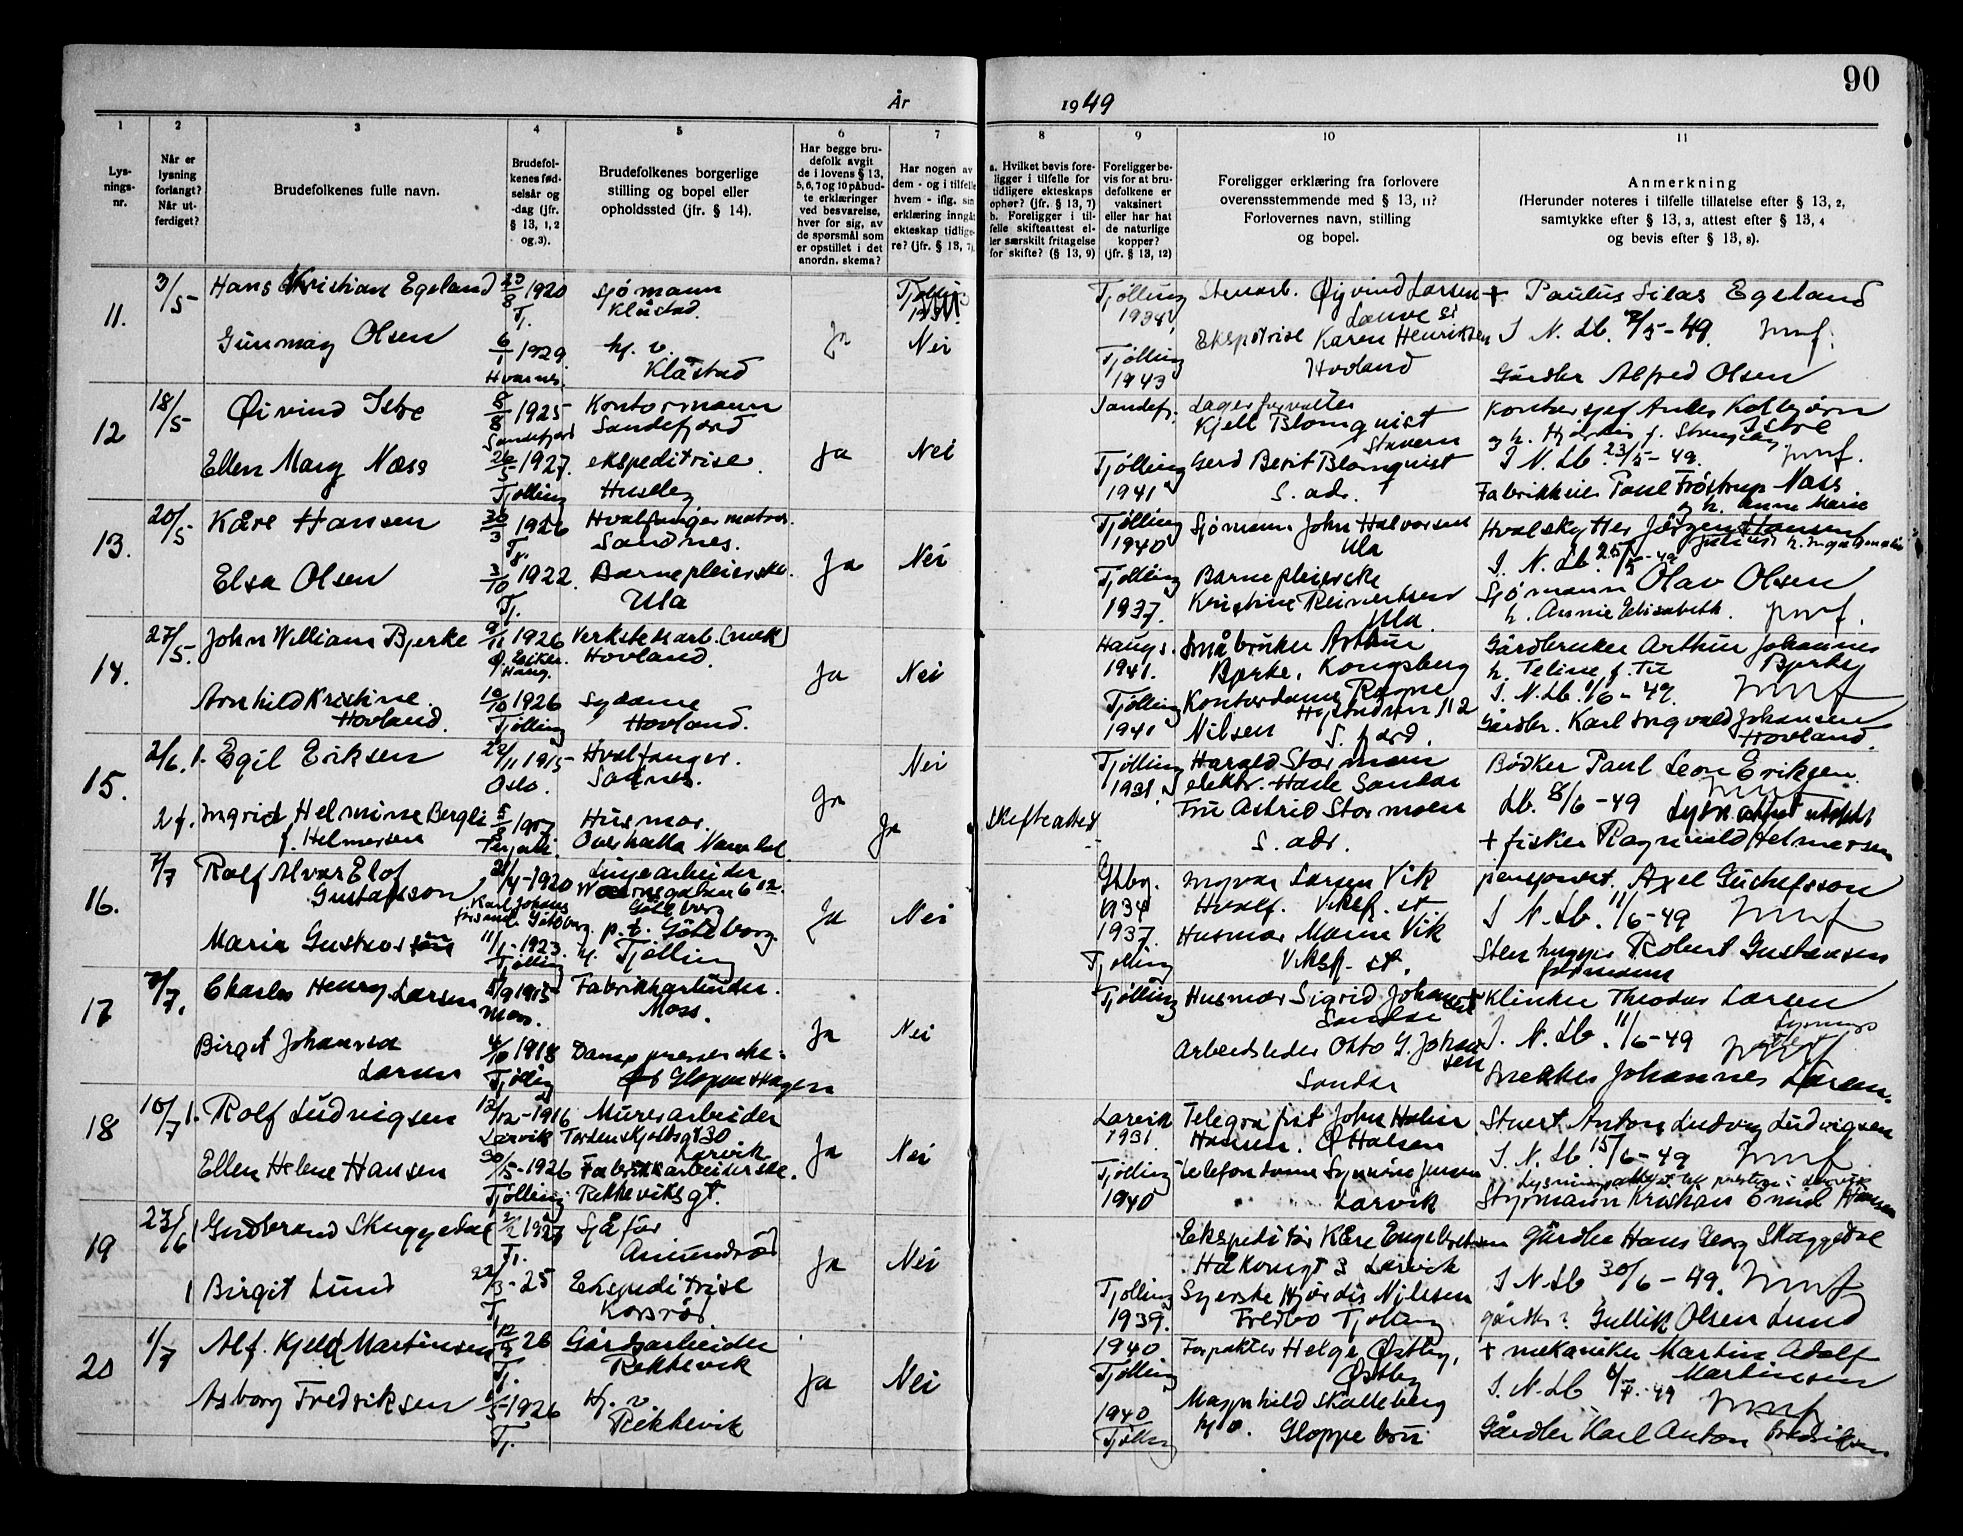 90
År 1949
1 2 3 4 5 6 7 8 9 10 11
Lys-
nings-
nr.
Når er
lysning
forlangt?
Når ut-
ferdiget?
Brudefolkenes fulle navn.
Brudefol-
kenes fød-
selsår og
-dag (jfr.
§ 13, 1, 2
og 3).
Brudefolkenes borgerlige
stilling og bopel eller
opholdssted (jfr. § 14).
Har begge bru-
defolk avgit
de i lovens § 13,
5, 6, 7 og 10 påbud-
te erklæringer
ved besvarelse,
hver for sig, av
de spørsmål som
er opstillet i det
anordn. skema?
Har nogen av
dem - og i tilfelle
hvem - iflg. sin
erklæring inngått
ekteskap tidlige-
re? (jfr. § 13, 7).
a. Hvilket bevis fore-
ligger i tilfelle for
tidligere ekteskaps
ophør? (jfr. § 13, 7)
b. Foreligger i til-
felle skifteattest el-
ler særskilt fritagelse
for skifte? (§ 13, 9)
Foreligger be-
vis for at bru-
defolkene er
vaksinert
eller har hat
de naturlige
kopper?
(jfr. § 13, 12)
Foreligger erklæring fra forlovere
overensstemmende med § 13, 11?
Forlovernes navn, stilling
og bopel.
Anmerkning
(Herunder noteres i tilfelle tillatelse efter § 13, 2,
samtykke efter § 13, 3, attest efter § 13, 4
og bevis efter § 13, 8).
11. 3/5 Hans Kristian Egeland 23/8 1920 T. sjømann Klåstad Tjølling 1934 Øyvind Larsen Lauve st + Paulus Silas Egeland
Gunmay Olsen 6/1 1929 Hvarnes hj. v. Klåstad Ja Nei Tjølling 1943 Ekspeditrise Karen Henriksen Hovland I N. Lb. 7/5-49
Gårdbr Alfred Olsen
12 18/5 Øivind Istre 8/8 1925 Sandefjord Kontormann Sandefjord Sandefj. Lagerforvalter Kjell Blomquist Stavern Kontorsjef Anders Kolbjørn Istre
Ellen Marg Næss 26/5 1927 Tjølling ekspeditrise Huseby Ja Nei Tjølling 1941 Gerd Berit Blomquist S. adr. I N. Lb. 23/5-49
Fabrikkeier Paul Frøstrup Næss og h. Anne Marie
13. 20/5 Kåre Hansen 30/3 1926 T. Hvalfanger matros. Sandnes. Tjølling 1940 Sjømann John Halvorsen Ula Hvalskytter Jørgen Hansen
Elsa Olsen 3/10 1922. T. Barnepleierske. Ula Ja Nei Tjølling 1937. Barnepleierske Kristine Reinertsen Ula I. N. Lb. 25/5-49
Sjømann Olav Olsen h. Annie Elisabeth
14. 27/5. John William Bjerke 9/11 1926 Ø. Eiker. Haug. Verkstedsarb. (mek) Hovland. Haugs. 1941. Småbruker Arthur Bjerke, Kongsberg Gårdbruker Arthur Johannes Bjerke
Arnhild Kristine Hovland 10/10 1926 Tjølling Sydame Hovland. Ja Nei Tjølling 1941 Kontordame Ragne Nilsen I. N. Lb. 1/6-49.
Gårdbr. Karl Ingvald Johansen Hovland.
15. 2/6. 1. Egil Eriksen 22/11 1915 Oslo. Hvalfanger. Nei Tjølling 1931 Harald Stormoen elektr. Sandar Bødker Paul Leon Eriksen.
2 f. Ingrid Helmine Bergli f. Helmersen 1907 Husmor. Overhalla Namdal. Ja Ja Skifteattest Fru Astrid Stormoen S. adr. Lb. 8/6-49
+ fisker Ragnvald Helmersen
16. 7/7 Rolf Alvar Elof Gustafsson 1920 Linjearbeider Göteborg Gbg. 1934 Ingvar Larsen Vik Hvalf. Viksf. st pensjonist. Axel Gustafsson
Maria Gustavsen 11/1-1923. Tjølling p.t. Göteborg Tjølling Ja Nei 1937. Tjølling Husmor Maria Vik Viksf. st. I N. Lb. 11/6-49
Stenhugger Robert Gustavsen formann
17 7/7. Charles Henry Larsen 5/9 1915 Moss. Fabrikkarbeider. Moss. Tjølling Husmor Sigrid Johansen Sandar Klinker Theodor Larsen
Birgit Johanna Larsen 4/10 1918 Tjølling Damp Ja Nei Arbeidsleder Otto G. Johansen Sandar I. N. Lb. 11/6-49
Snekker Johannes Larsen.
18 10/7 1. Rolf Ludvigsen 12/12-1916 Larvik Murerarbeider Tordenskjoldsgt 30 Larvik Larvik 1931 Telegrafist John Holm Hansen. Ø Halsen Stuert Anton Ludvig Ludvigsen
Ellen Helene Hansen 30/5-1926 Tjølling Fabrikkarbeiderske. Rekkeviksgt. Ja Nei Tjølling 1940 Telefondame Synnøve Jensen Larvik I. N. Lb. 15/6-49
Lysningsattest til presten i Larvik
Styrmann Kristian Emil Hansen
19 23/6 1 Gudbrand Skuggedal 1927 T. Sjåfør Amundrød Ekspeditør Kåre Engebretsen Håkonsgt 3 Larvik Gårdbr Hans Georg Skuggedal
1 Birgit Lund 22/3-25 T. Ekspeditrise Korsrød Ja Nei Tjølling 1939. Syerske Hjørdis Nilssen Fredbo Tjølling I N Lb 30/6-49.
Gullik Olsen Lund
20 1/7 Alf. Kjeld Martinsen 26 T. Gårdsarbeider Rekkevik 1940 Tjølling Forpakter Helge Østby, Østby + mekaniker Martin Adolf Martinsen
Asborg Fredriksen 1926 T. Hj. v Rekkevik Ja Nei 1940 Tjølling Magnhild Skalleberg Gloppebru I. N. Lb 4/7-49
Gårdbr Karl Anton Fredriksen